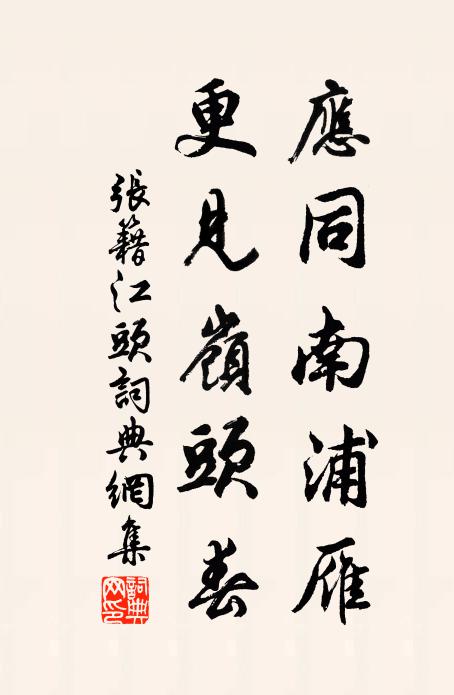 應同南浦雁
更見嶺頭春
張籍江頭詞典網集
詞典網印